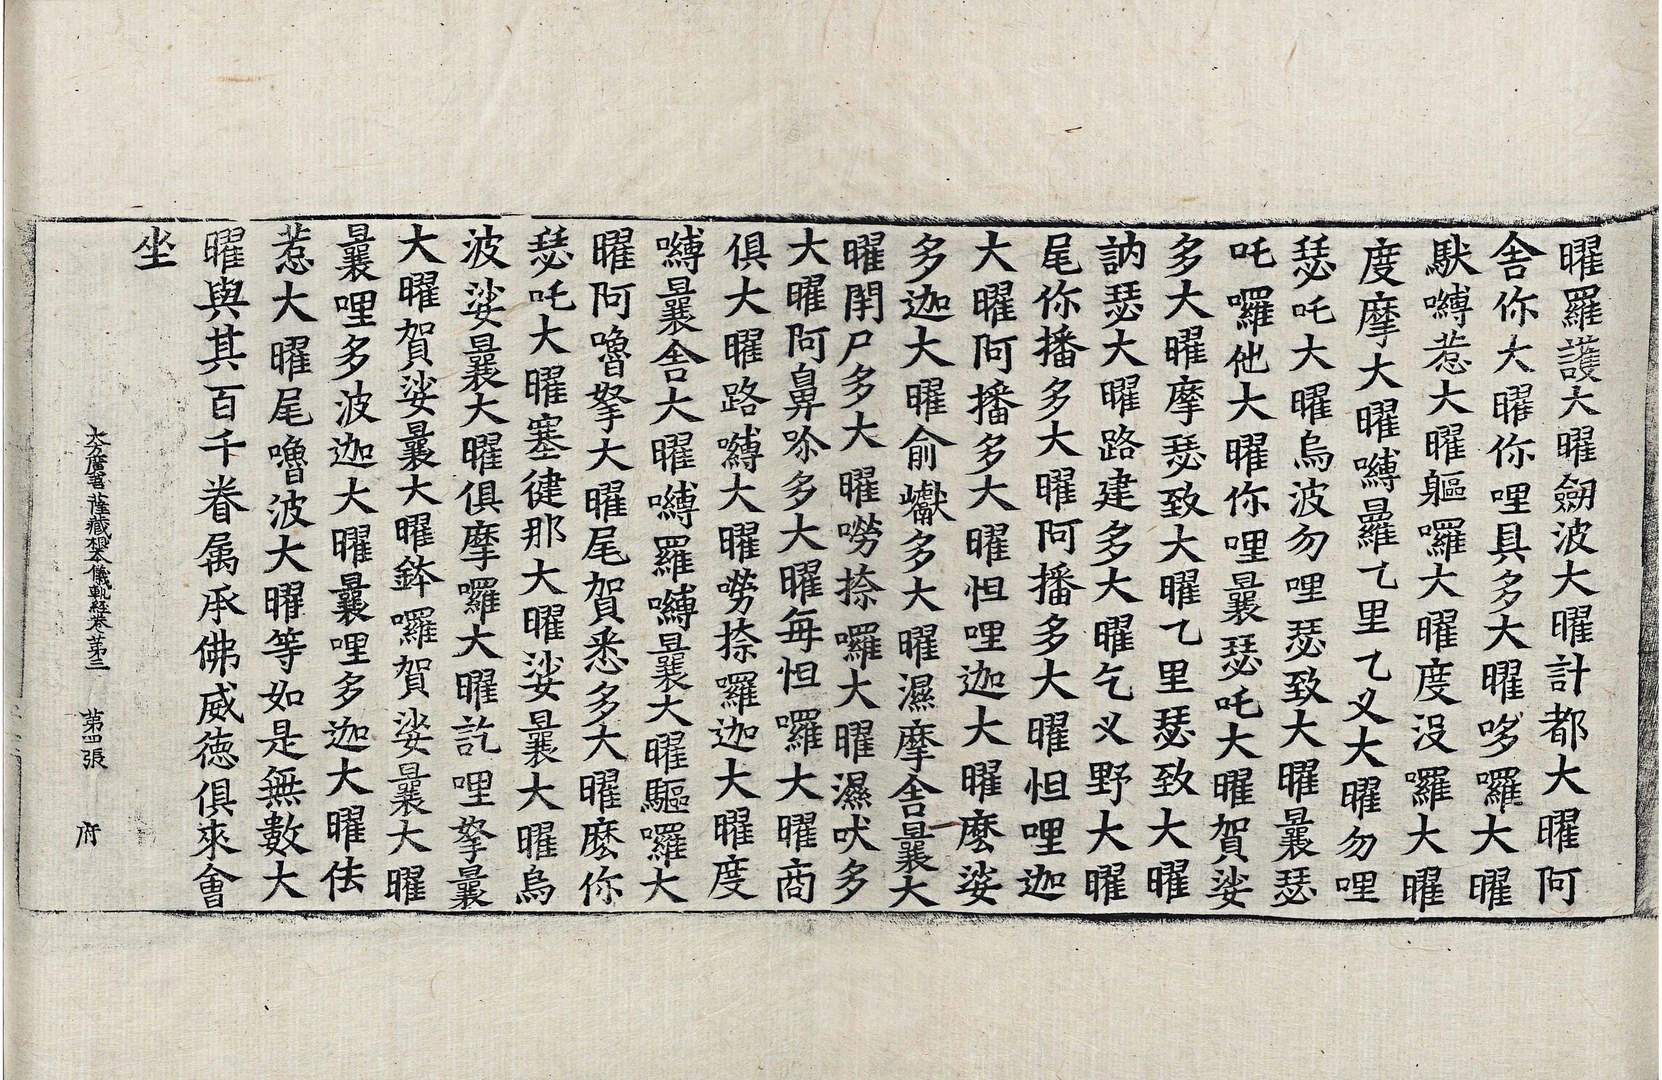 曜羅護大曜劒波大曜計都大曜阿
舍你大曜你哩具多大曜哆囉大曜
馱嚩惹大曜軀囉大曜度沒囉大曜
度摩大曜嚩曩羅乞里乞叉大曜勿哩
瑟吒大曜烏波勿哩瑟致大曜曩瑟
吒囉他大曜你哩曩瑟吒大曜賀娑
多大曜摩瑟致大曜乞里瑟致大曜
訥瑟大曜路建多大曜乞叉野大曜
尾你播多大曜阿播多大曜怛哩迦
大曜阿播多大曜怛哩迦大曜麽娑
多迦大曜俞巘多大曜濕摩舍曩大
曜閉尸多大曜嘮捺囉大曜濕吠多
大曜阿鼻 多大曜每怛囉大曜商
俱大曜路嚩大曜嘮捺囉迦大曜度
嚩曩舍大曜嚩羅嚩曩大曜驅囉大
曜阿嚕拏大曜尾賀悉多大曜麽你
瑟吒大曜塞健那大曜娑曩大曜烏
波娑曩大曜俱摩囉大曜訖哩拏曩
大曜賀娑曩大曜鉢囉賀娑曩大曜
曩哩多波迦大曜曩哩多迦大曜佉
惹大曜尾嚕波大曜等如是無數大
曜與其百千眷属承佛威德俱來會
坐
大方廣菩薩藏根本儀軌経卷苐三 苐四張 府